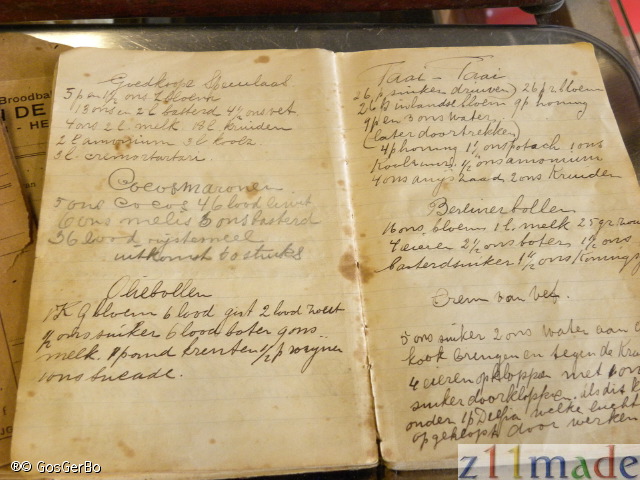 Broodba
N DE
- HE
Goedkoop Speculaas
5 p en 1 1/2 ons bloem
13 ons en 2 l basterd 4 1/2 ons vet
4 ons 2 l. melk 18 l. kruiden
2 l amonium 3 l
3 l. cremortartari.
Cocosmaronen.
5 ons Cocos 46 lood eiwit
6 ons melis 5 ons basterd
36 lood rijstemeel
uitkomst 60 stuks
Oliebollen
1 KG bloem 6 lood gist 2 lood zout
1 1/2 ons suiker 6 lood boter 9 ons
melk. 1 pond krenten 1/2 p rozijnen
1 ons sucade.
Taai - Taai
26 p suiker 26 p r. bloem
26 inlandse bloem 9 p honing
9 p en 3 ons water.
(later doortrekken)
4 p honing 1 1/2 ons potach 1 ons
1/2 ons amonium
4 ons anijszaad 2 ons Kruiden
Berlinerbollen
16 ons bloem 1 l. melk 25 gr. zou
4 eieren 2 1/2 ons boter 1 1/2 ons
basterdsuiker 1 1/2 ons Konings
Crem van vet.
5 ons suiker 2 ons water aan d
kook brengen en tegen de Kra
4 eieren opkloppen met 1 ons
suiker doorkloppen. als dit k
onder 1 p Delfia welke lucht
opgeklopt door werken
®© GosGerBo
z11made